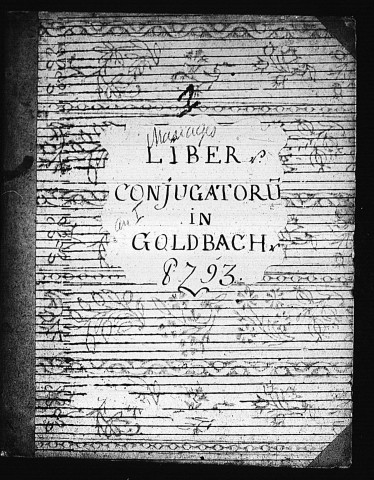 I
Mariages
LIBER
CONJUGATORŪ
an I
in
GOLDBACH
8793.